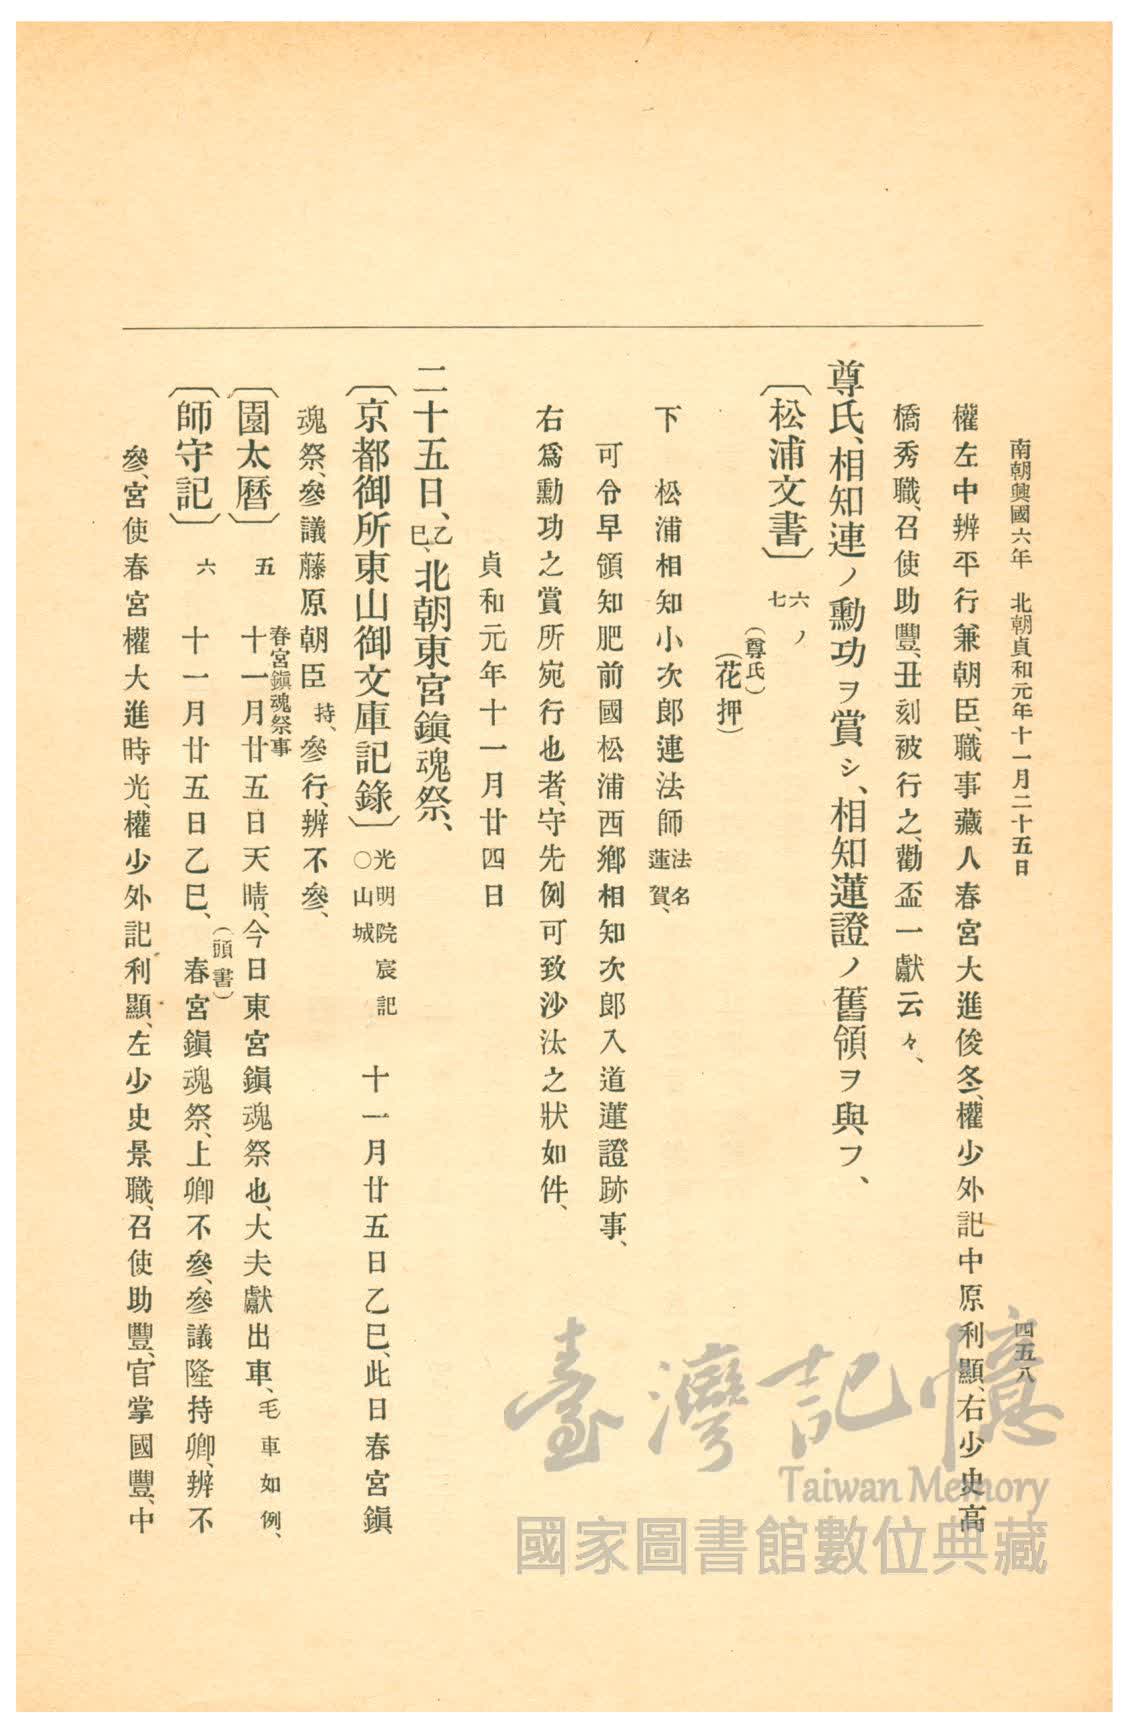 南朝興國六年　北朝貞和元年十一月二十五日
四五八
權左中辨平行兼朝臣、職事藏人春宮大進俊冬、權少外記中原利顯、右少史高
橋秀職、召使助豐、丑刻被行之、勸盃一獻云々、
尊氏、相知連ノ勳功ヲ賞シ、相知蓮證ノ舊領ヲ與フ、
〔松浦文書〕六ノ七
(尊氏)
(花押)
下　松浦相知小次郎連法師法名蓮賀、
可令早領知肥前國松浦西鄉相知次郎入道蓮證跡事、
右爲勳功之賞所宛行也者、守先例可致沙汰之狀如件、
貞和元年十一月廿四日
二十五日、乙巳、北朝東宮鎭魂祭、
〔京都御所東山御文庫記錄〕光明院宸記○山城　十一月廿五日乙巳、此日春宮鎭
魂祭、參議藤原朝臣持、參行、辨不參、
春宮鎭魂祭事
〔園太曆〕五　十一月廿五日天晴、今日東宮鎭魂祭也、大夫獻出車、毛車如例、
(頭書)
〔師守記〕六　十一月廿五日乙巳、春宮鎭魂祭、上卿不參、參議隆持卿、辨不
參、宮使春宮權大進時光、權少外記利顯、左少史景職、召使助豐、官掌國豐、中
臺灣記憶
Taiwan Memory
國家圖書館數位典藏